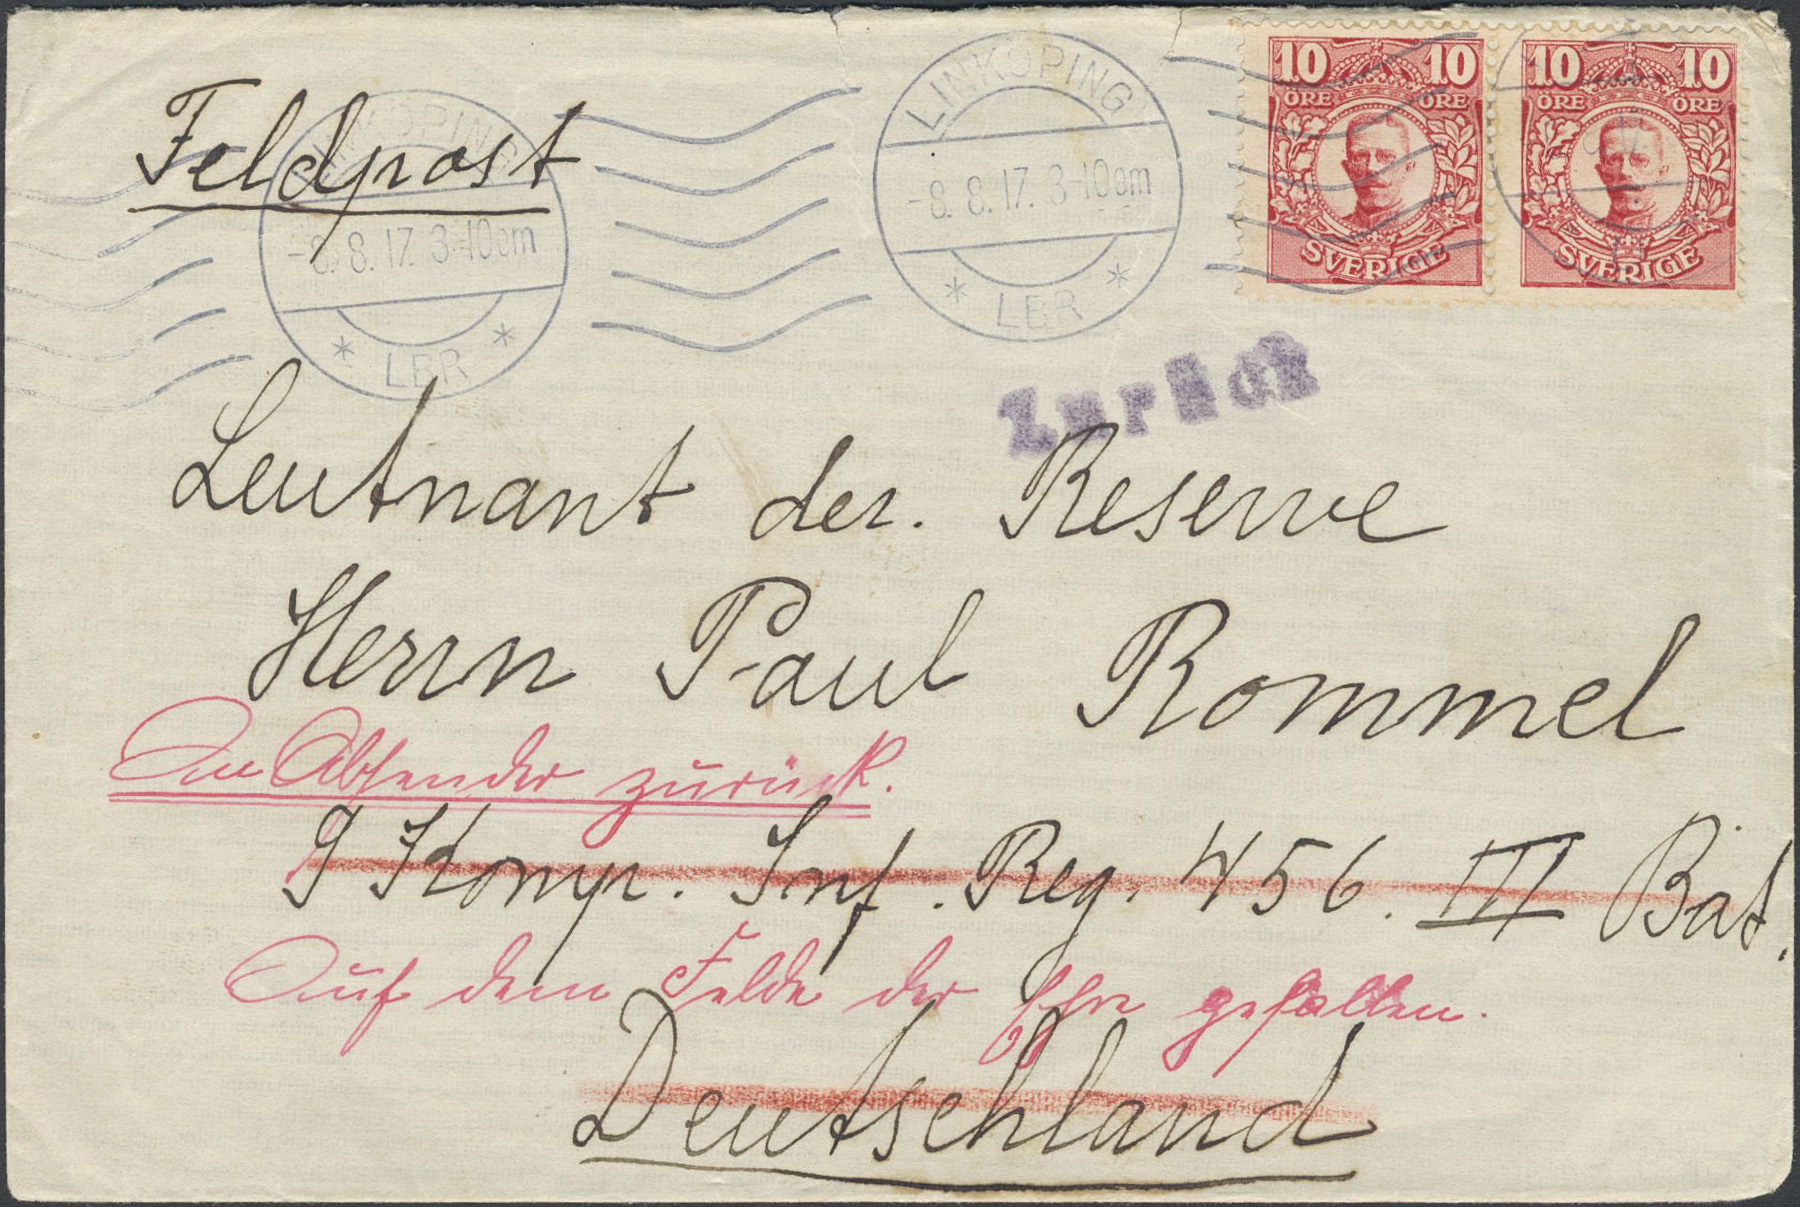 Feldpost
LINKÖPING
-8. 8. 17. 3-10em
* LBR *
LINKÖPING
-8. 8. 17. 3-10em
* LBR *
10 10
ÖRE ÖRE
SVERIGE
10 10
ÖRE ÖRE
SVERIGE
Zurück
Leutnant der. Reserve
Herrn Paul Rommel
An Absender zurück.
9 Komp. Inf. Reg. 456. III Bat.
Auf dem Felde der Ehre gefallen.
Deutschland